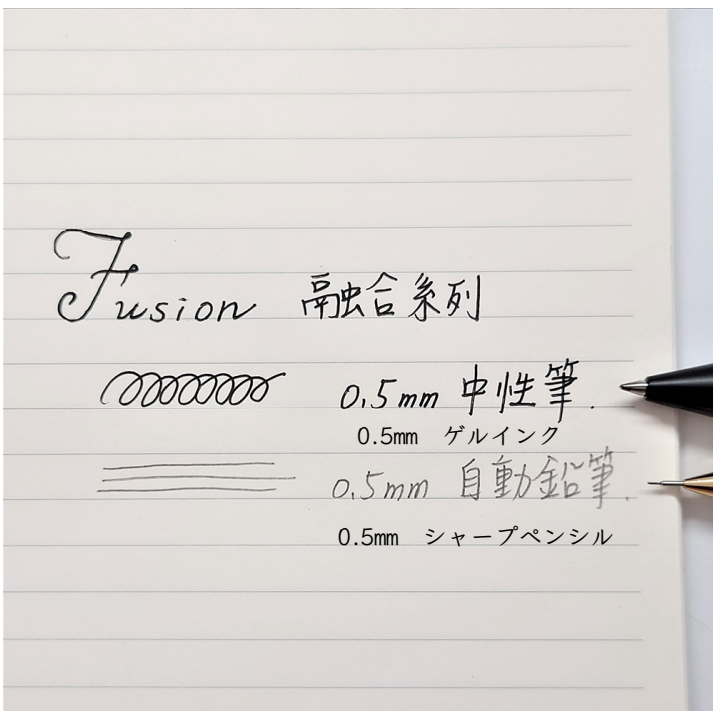 Fusion 融合系列
0.5mm 中性筆.
0.5mm ゲルインク
0.5mm 自動鉛筆.
0.5mm シャープペンシル